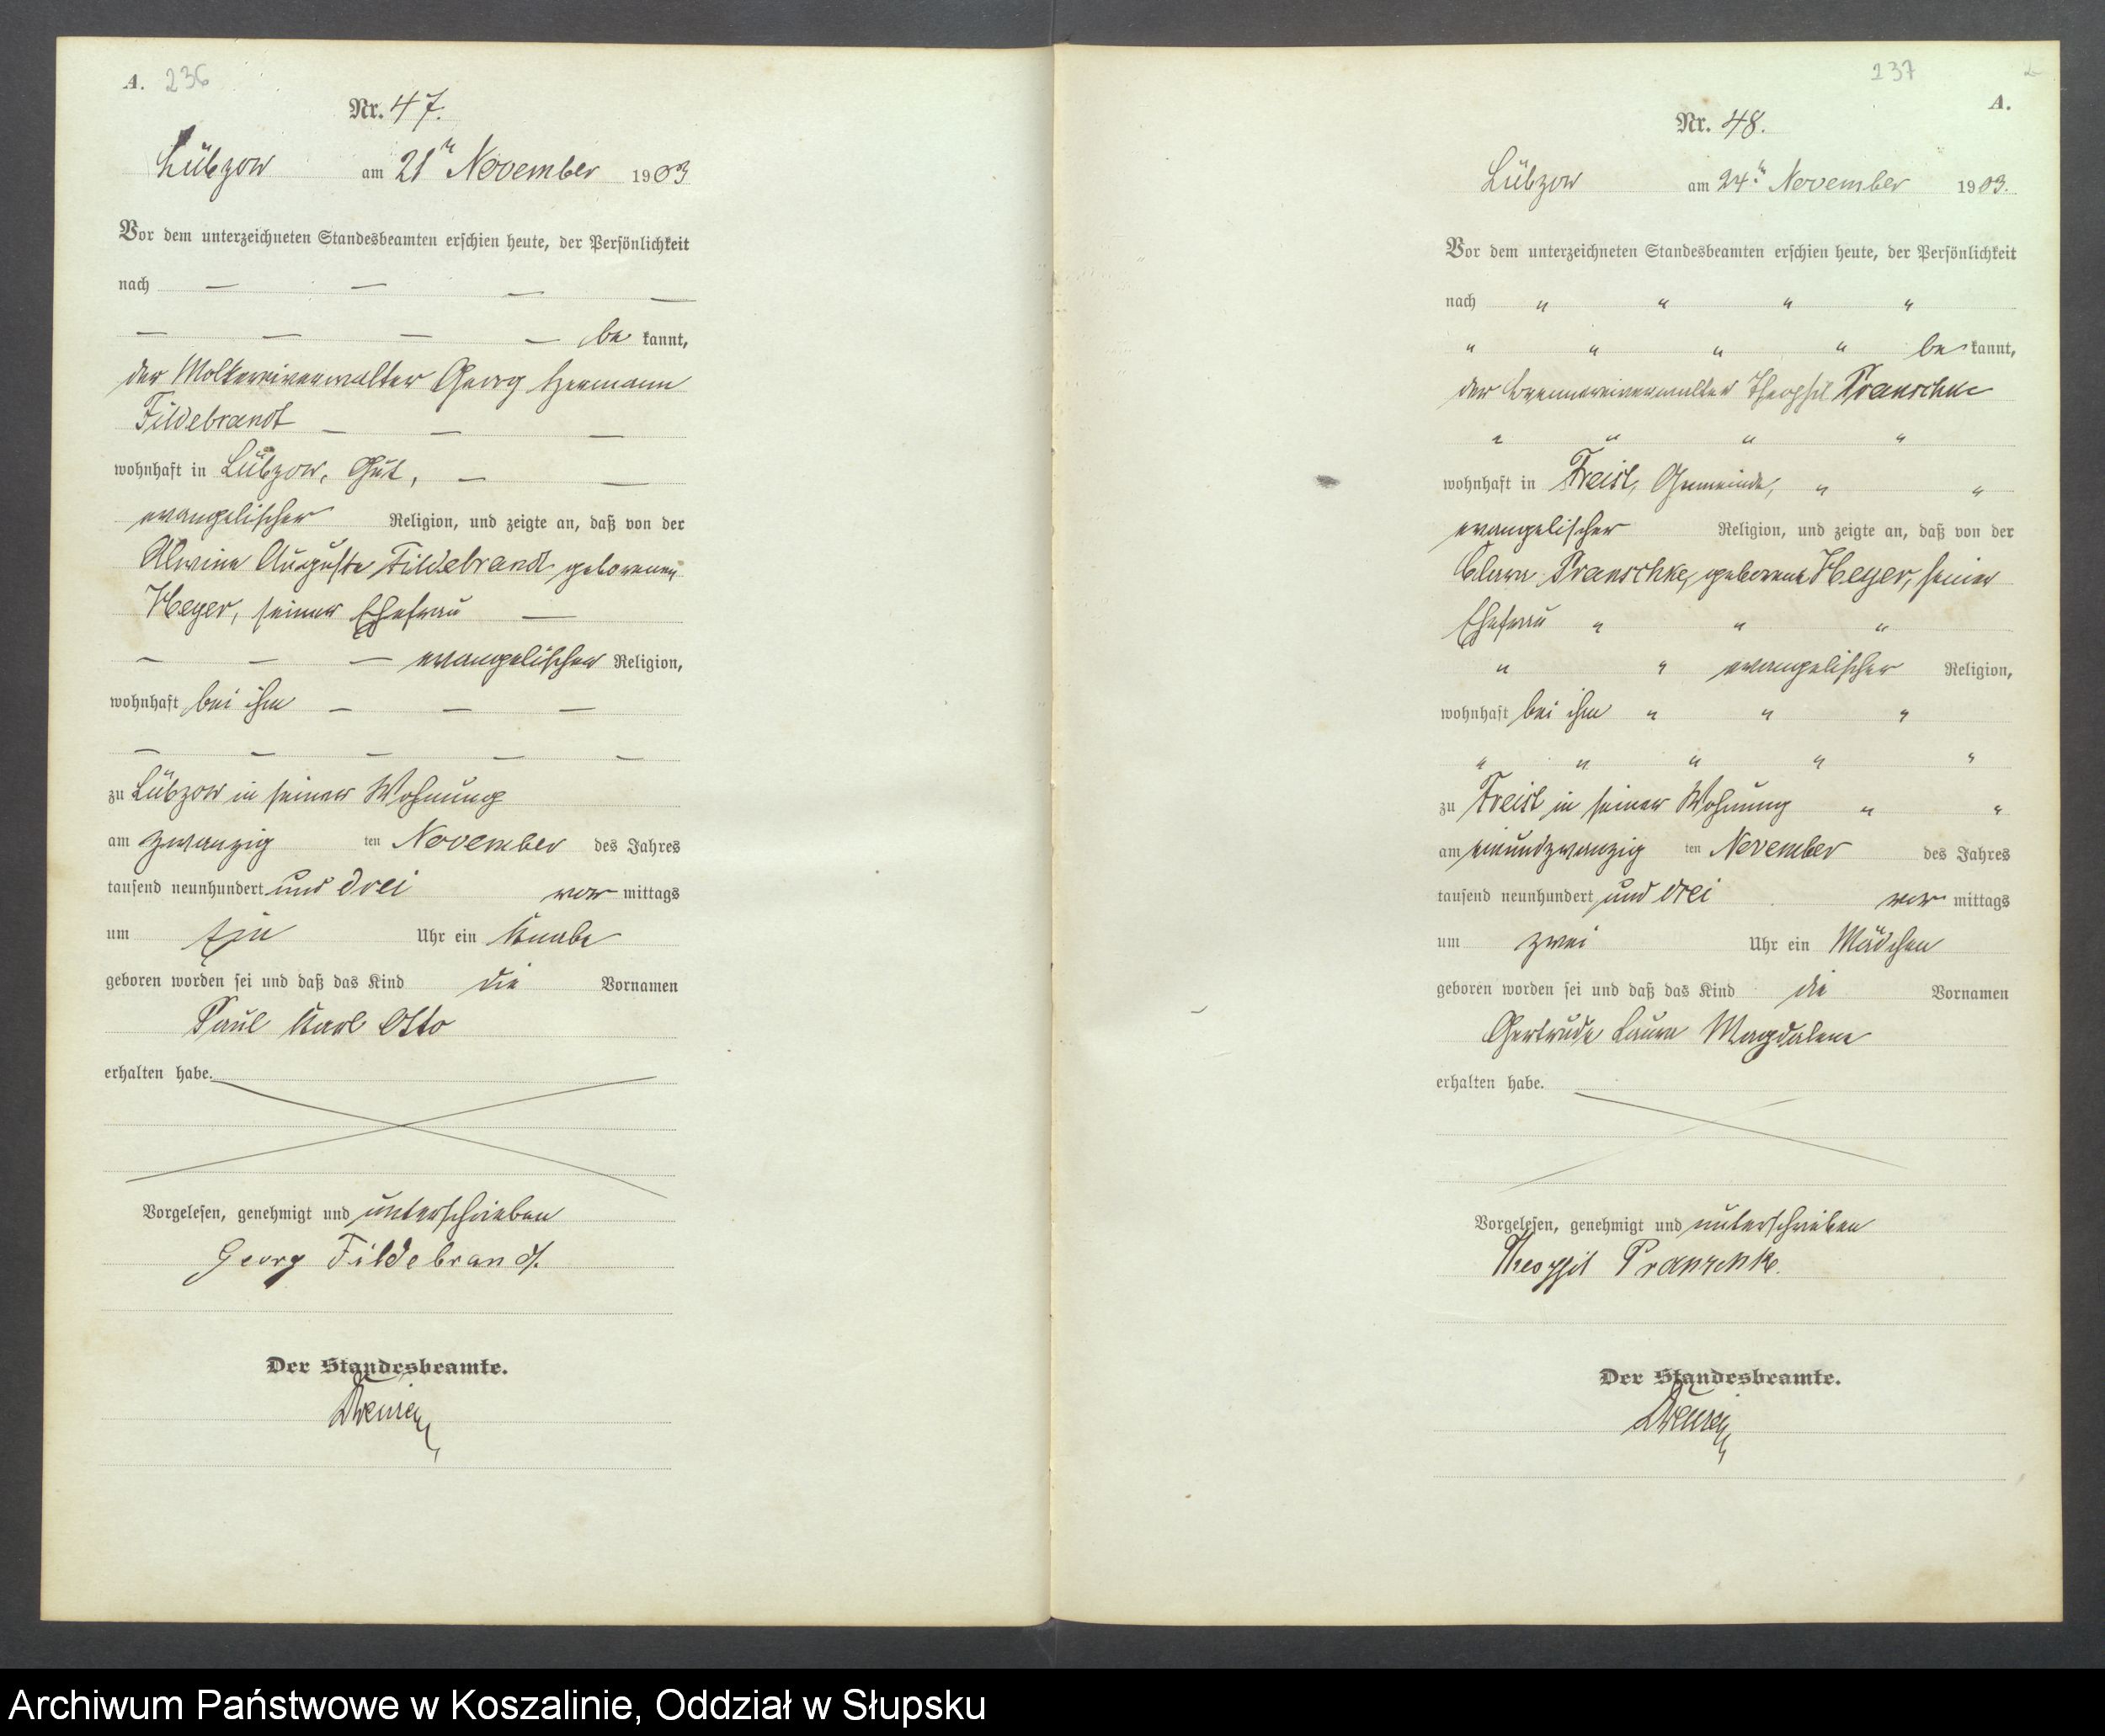 A. 236
Nr. 47.
Lübzow am 21ten November 1903
Vor dem unterzeichneten Standesbeamten erschien heute, der Persönlichkeit
nach — — — —
— — — — be kannt,
der Molkereiverwalter Georg Hermann
Fildebrandt — — —
wohnhaft in Lübzow, Gut, — —
evangelischer Religion, und zeigte an, daß von der
Alwine Auguste Fildebrandt geborenen
Heyer, seiner Ehefrau —
— — — evangelischer Religion,
wohnhaft bei ihm — — —
— — — — —
zu Lübzow in seiner Wohnung
am zwanzig ten November des Jahres
tausend neunhundert und drei vor mittags
um ein Uhr ein Knabe
geboren worden sei und daß das Kind die Vornamen
Paul Karl Otto
erhalten habe.
Vorgelesen, genehmigt und unterschrieben
Georg Fildebrandt.
Der Standesbeamte.
237
A.
Nr. 48.
Lübzow am 24ten November 1903.
Vor dem unterzeichneten Standesbeamten erschien heute, der Persönlichkeit
nach " " " "
" " " " be kannt,
der Brennereiverwalter Theophil Pranschke
" " " "
wohnhaft in Freist, Gemeinde, " "
evangelischer Religion, und zeigte an, daß von der
Clara Pranschke, geborene Heyer, seiner
Ehefrau " " "
" " evangelischer Religion,
wohnhaft bei ihm " " "
" " " " "
zu Freist in seiner Wohnung " "
am einundzwanzig ten November des Jahres
tausend neunhundert und drei vor mittags
um zwei Uhr ein Mädchen
geboren worden sei und daß das Kind die Vornamen
Gertrude Laura Magdalene
erhalten habe.
Vorgelesen, genehmigt und unterschrieben
Theophil Pranschke.
Der Standesbeamte.
Archiwum Państwowe w Koszalinie, Oddział w Słupsku